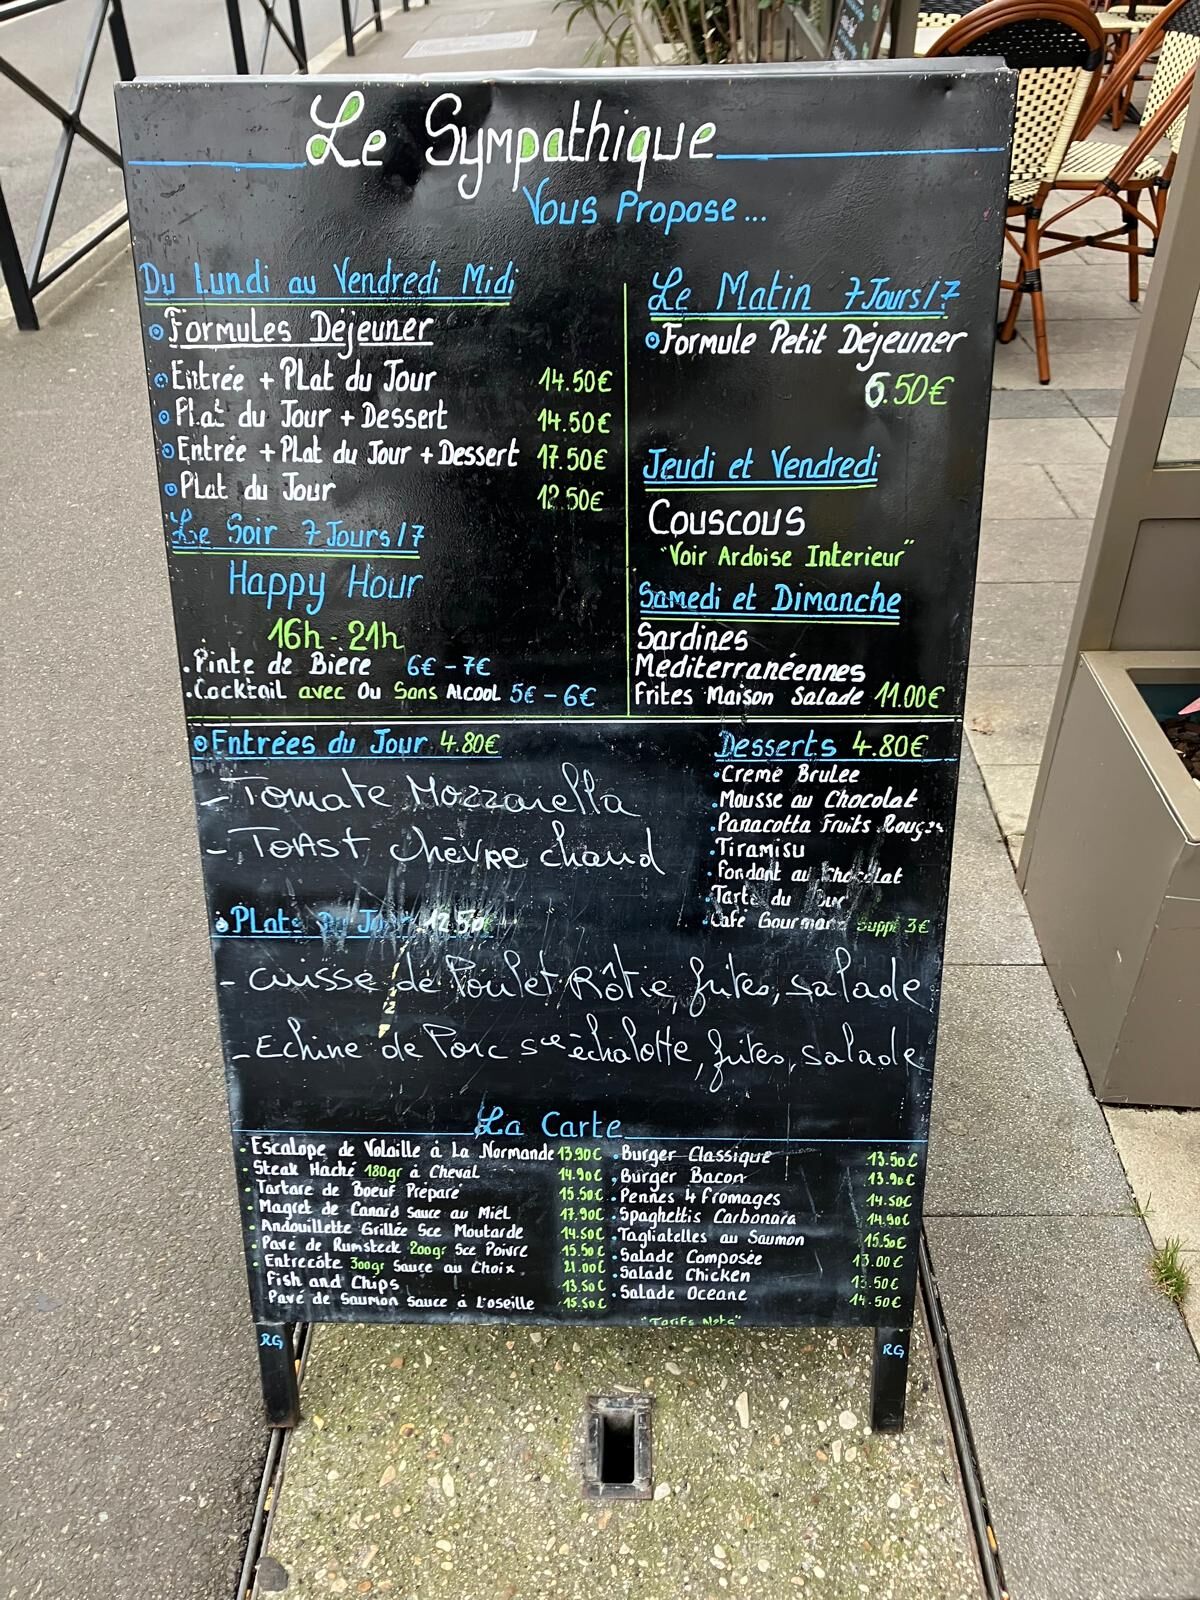 Le Sympathique
Vous Propose...
Du Lundi au Vendredi Midi
Formules Déjeuner
Entrée + Plat du Jour 14.50€
Plat du Jour + Dessert 14.50€
Entrée + Plat du Jour + Dessert 17.50€
Plat du Jour 12.50€
Le Soir 7 Jours/7
Happy Hour
16h - 21h
.Pinte de Biere 6€ - 7€
.Cocktail avec Ou Sans Alcool 5€ - 6€
Le Matin 7 Jours/7
Formule Petit Déjeuner
6.50€
Jeudi et Vendredi
Couscous
"Voir Ardoise Interieur"
Samedi et Dimanche
Sardines
Mediterranéennes
Frites Maison Salade 11.00€
Entrées du Jour 4.80€
- Tomate Mozzarella
- Toast chèvre chaud
Desserts 4.80€
.Creme Brulee
.Mousse au Chocolat
.Panacotta Fruits Rouges
.Tiramisu
.Fondant au Chocolat
.Tarte du Jour
.Café Gourmand Suppl 3€
Plats du Jour 12.50€
- cuisse de Poulet Rôtie, frites, salade
- Echine de Porc sce échalotte, frites, salade
La Carte
. Escalope de Volaille à La Normande 13.90€
. Steak Haché 180gr à Cheval 14.90€
. Tartare de Boeuf Préparé 15.50€
. Magret de Canard Sauce au Miel 17.90€
. Andouillette Grillée Sce Moutarde 14.50€
. Pavé de Rumsteck 200gr Sce Poivre 15.50€
. Entrecôte 300gr Sauce au Choix 21.00€
Fish and Chips 13.50€
Pavé de Saumon Sauce à L'oseille 15.50€
. Burger Classique 13.50€
. Burger Bacon 13.90€
. Pennes 4 fromages 14.50€
. Spaghettis Carbonara 14.90€
. Tagliatelles au Saumon 15.50€
. Salade Composée 13.00€
. Salade Chicken 13.50€
. Salade Oceane 14.50€
"Tarifs Nets"
RG
RG